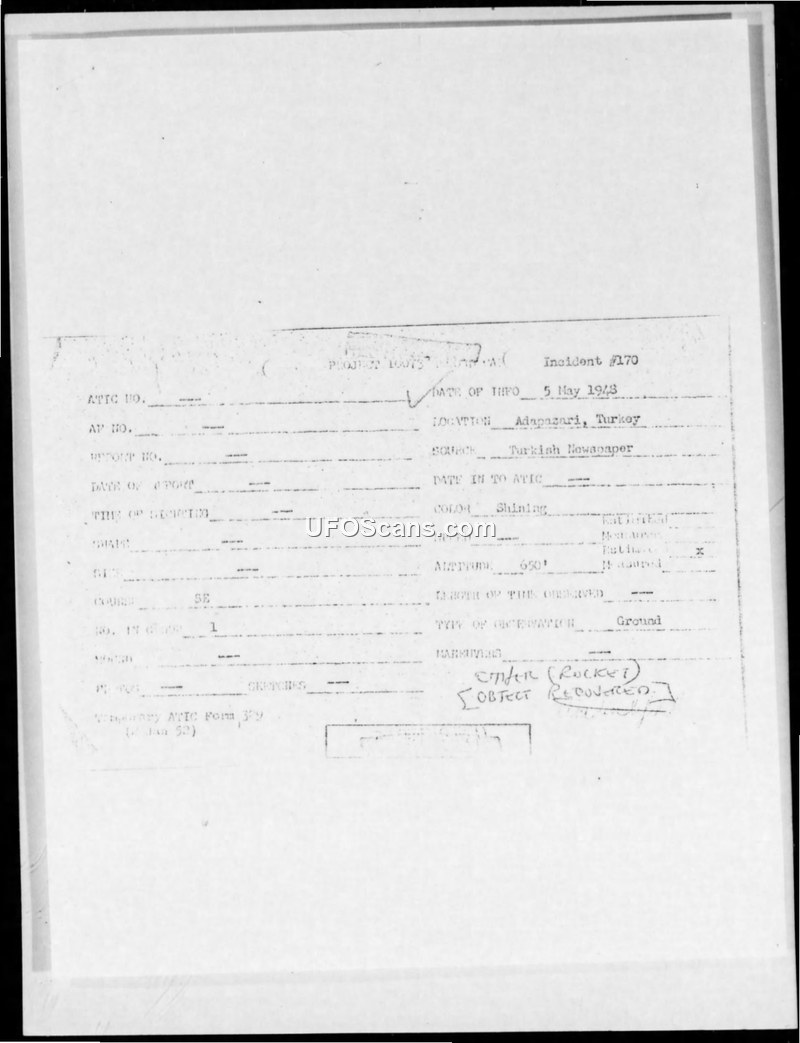 PROJECT 10073 Incident #170
ATIC NO. --- DATE OF INFO 5 May 1948
AF NO. --- LOCATION Adapazari, Turkey
REPORT NO. --- SOURCE Turkish Newspaper
DATE OF REPORT --- DATE IN TO ATIC ---
TIME OF SIGHTING --- COLOR Shining
UFOScans.com
SHAPE --- SPEED --- Estimated
Measured
SIZE --- ALTITUDE 650' Estimated x
Measured
COURSE SE LENGTH OF TIME OBSERVED ---
NO. IN GROUP 1 TYPE OF OBSERVATION Ground
SOUND --- MANEUVERS ---
PHOTOS --- SKETCHES ---
OTHER (ROCKET)
[OBJECT RECOVERED]
Temporary ATIC Form 329
(2 Jan 52)